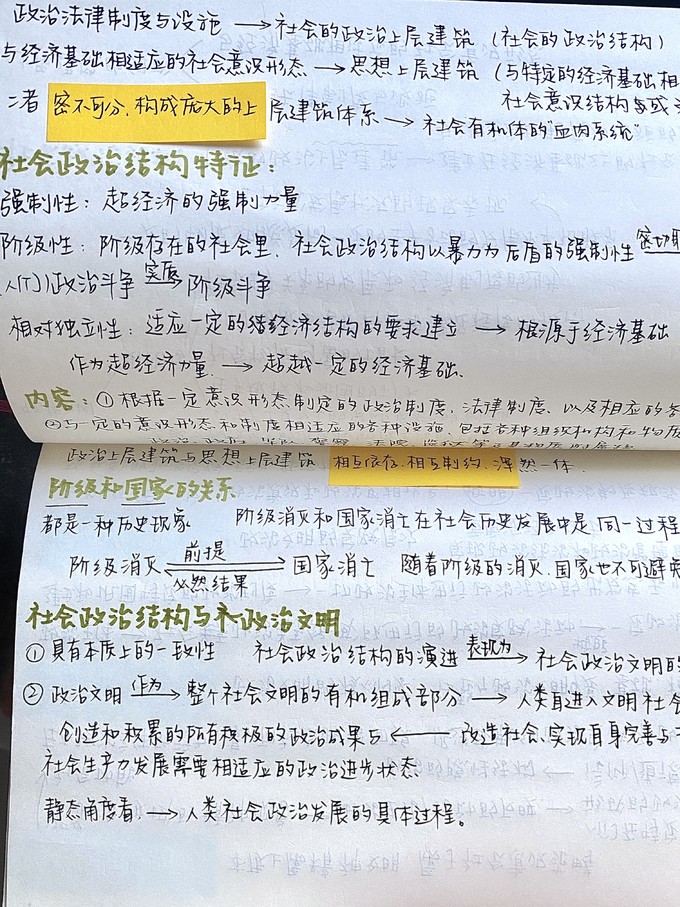 政治法律制度与设施 → 社会的政治上层建筑 (社会的政治结构)
与经济基础相适应的社会意识形态 → 思想上层建筑 (与特定的经济基础相
社会意识结构
二者 密不可分,构成庞大的上层建筑体系 → 社会有机体的"血肉系统"
社会政治结构特征:
强制性: 超经济的强制力量
阶级性: 阶级存在的社会里, 社会政治结构以暴力为后盾的强制性 密切联
政治斗争 实质→ 阶级斗争
相对独立性: 适应一定的经济结构的要求建立 → 根源于经济基础
作为超经济力量 → 超越一定的经济基础.
内容: ① 根据一定意识形态制定的政治制度, 法律制度, 以及相应的各
②与一定的意识形态和制度相适应的各种设施, 包括各种组织机构和物质
政治上层建筑与思想上层建筑 相互依存.相互制约.浑然一体.
阶级和国家的关系
都是一种历史现象 阶级消灭和国家消亡在社会历史发展中是同一过程
阶级消灭 前提 必然结果 国家消亡 随着阶级的消灭.国家也不可避免
社会政治结构与政治文明
① 具有本质上的一致性 社会政治结构的演进 表现为→ 社会政治文明的
② 政治文明 作为→ 整个社会文明的有机组成部分 → 人类自进入文明社会
创造和积累的所有积极的政治成果与 ← 改造社会、实现自身完善与
社会生产力发展需要相适应的政治进步状态
静态角度看. → 人类社会政治发展的具体过程。